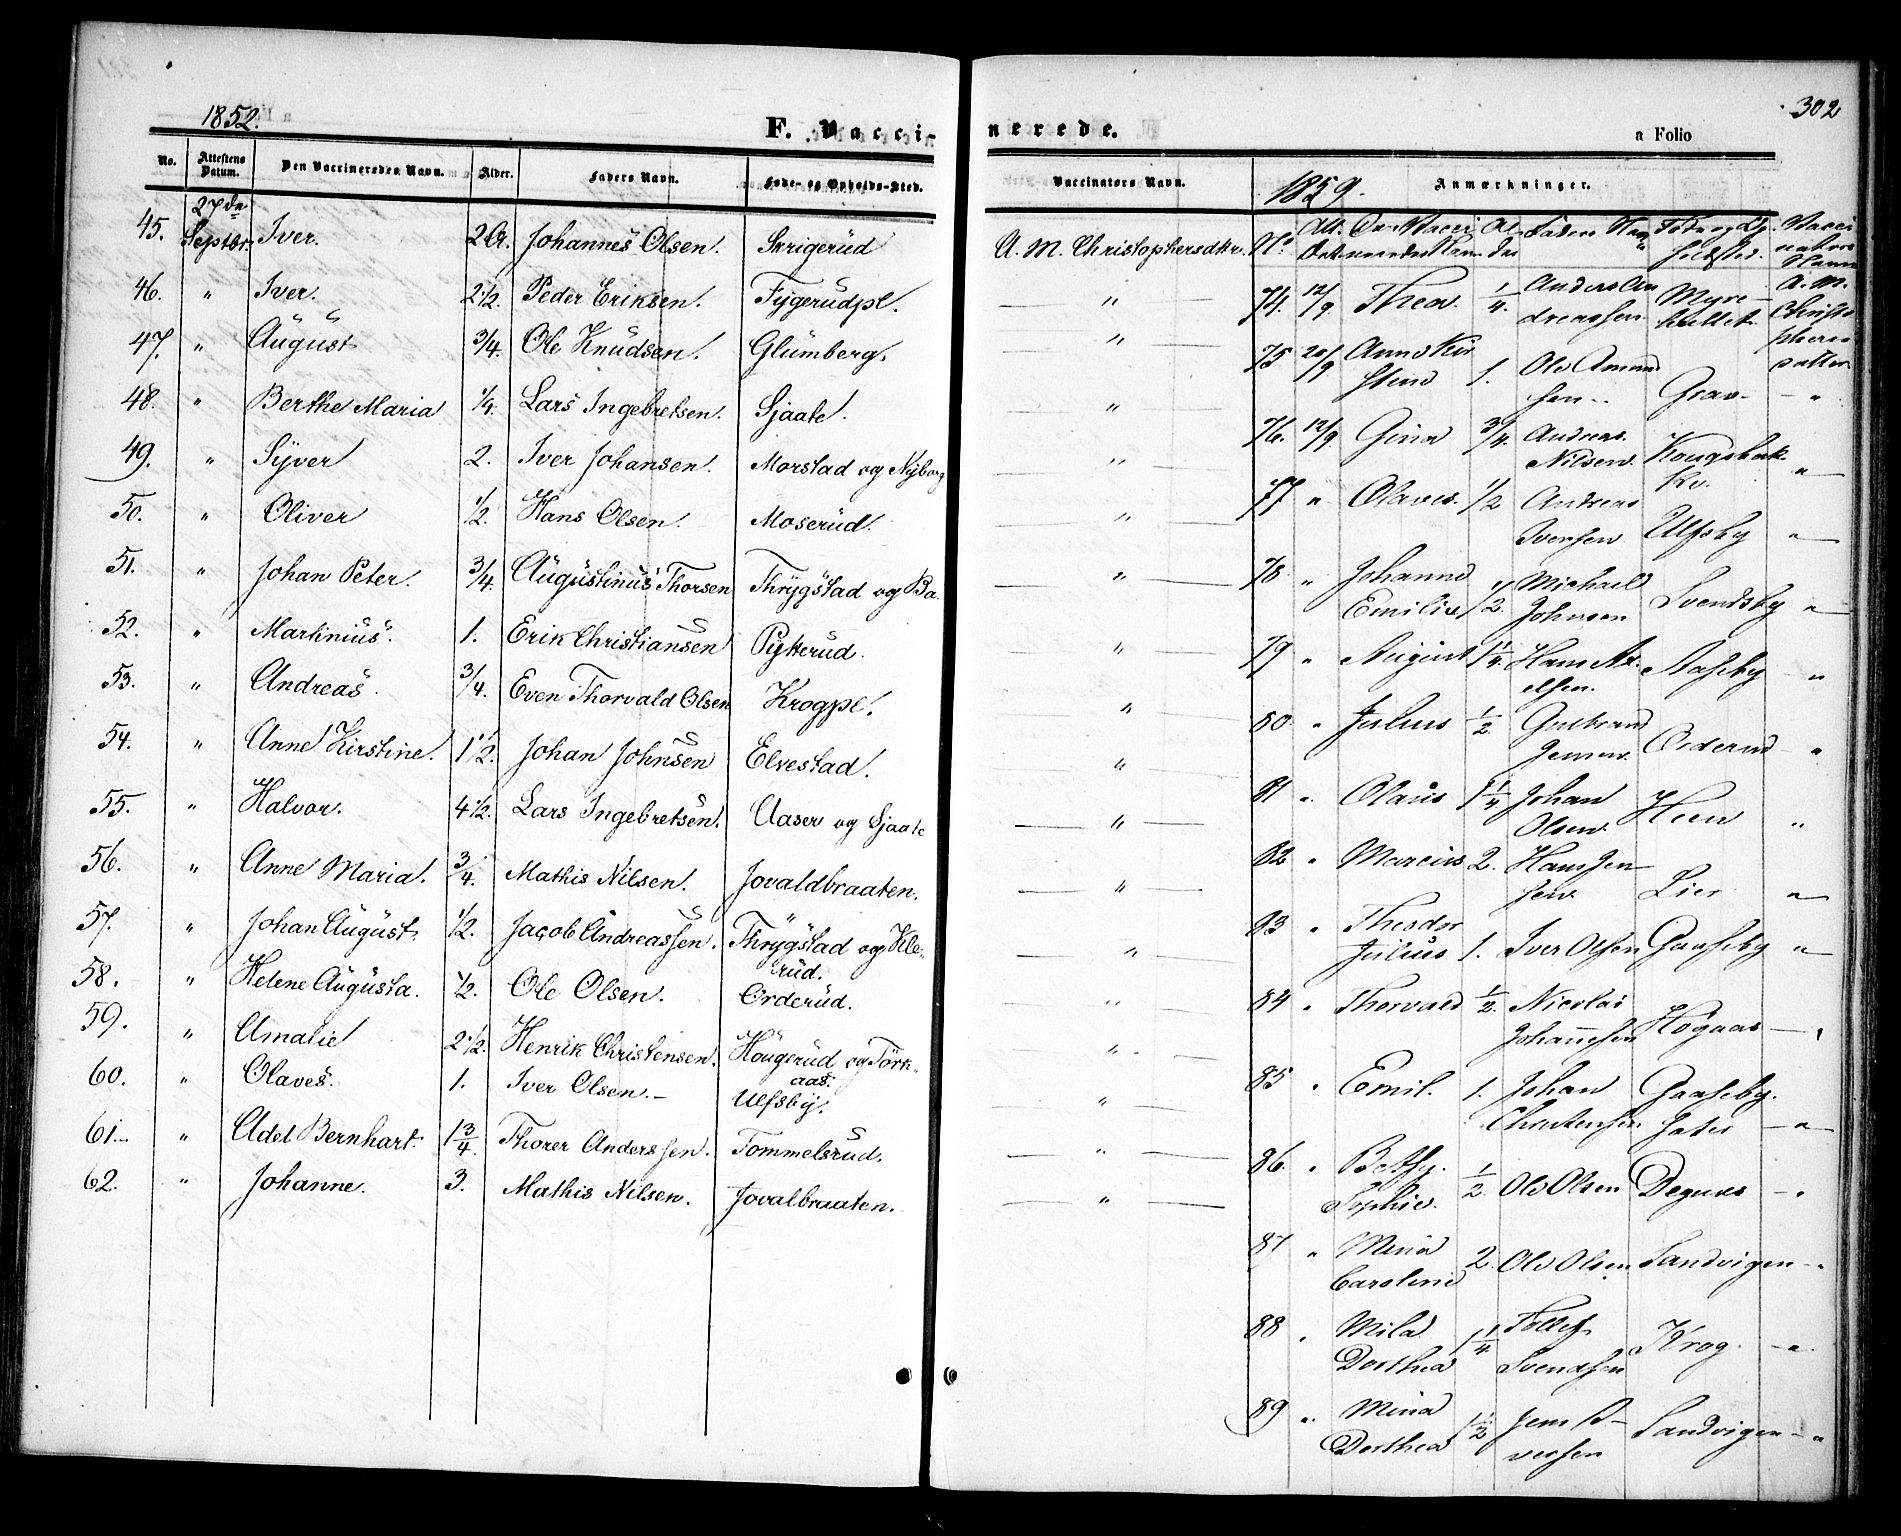 1852.
F. Vacci-
No. Attestens Datum. Den Vaccineredes Navn. Alder. Faders Navn. Føde- og Opholds-Sted.
45. 27de Septbr. Iver. 2 Johannes Olsen. Skrigerud
46. " Iver. 2 1/2. Peder Eriksen. Fygerudpl.
47. " August 3/4. Ole Knudsen. Glumberg.
48. " Berthe Maria 1/4. Lars Ingebretsen. Sjaate.
49. " Syver 2. Iver Johansen. Morstad og Nyborg
50. " Oliver 1/2. Hans Olsen. Moserud.
51. " Johan Peter. 3/4. Augustinus Thorsen Thrygstad og Ba.
52. " Martinius. 1. Erik Christiansen Pykerud.
53. " Andreas. 3/4. Even Thorvald Olsen Krogpl.
54. " Anne Kirstine. 1 1/2. Johan Johnsen Elvestad.
55. " Halvor. 4 1/2. Lars Ingebretsen. Aaser og Sjaate
56. " Anne Maria. 3/4. Mathis Nilsen. Jovaldbraaten.
57. " Johan August. 1/2. Jacob Andreassen. Thrygstad og Kle-
rud.
58. " Helene Augusta. 1/2. Ole Olsen. Orderud.
59. " Amalie 2 1/2. Henrik Christensen. Haugerud og Tørk-
aas.
60. " Olaves. 1. Iver Olsen. Ulfsby.
61. " Adel Bernhart. 1 3/4 Thorer Anderssen. Tommelsrud.
62. " Johanne. 3. Mathis Nilsen. Jovalbraaten.
302
nerede.
a Folio
Vaccinators Navn. 1859. Anmærkninger.
A. M. Christophersdatr.
No Att. Dat. Den Vacci neredes Navn Al der Faders Navn Føde og Op holdsted. Vacci nators Navn
74. 12/9 Thea. 1/4. Anders An
dreassen Myre-
hullet. A. M. Christo
phers
datter.
75 20/9 Anne Kir
stine 1. Ole Amund
sen Grav. "
76. 12/9 Gina 3/4. Andreas
Nilsen Kongsbak
"
77 " Olaves. 1/2 Andreas
Iversen Ulfsby "
78 " Johanne
Emilie 1/2. Michael
Johnsen Svendsby "
79 " August 1 1/4. Hans Ax
elsen. Aaseby "
80. " Julius 1/2. Gulbrand
Jensen. Orderud "
81 " Olaus 1 1/4 Johan
Olsen. Heen "
82 " Marcius 2. Hans Jen
sen Lier "
83 " Theodor
Julius 1. Iver Olsen Gaaseby "
84 " Thorvald 1/2. Nicolai
Johannesen Høgaas "
85 " Emil. 1. Johan
Christensen Gaaseby.
"
86. " Bethy
Sophie. 1/2. Ole Olsen Degnes "
87 " Mina
Caroline 2. Ole Olsen Sandvigen "
88 " Mila
Dorthea 1 1/4 Tollef
Svendsen Krog. "
89 " Mina
Dorthea 1 1/2 Jens
Sandvigen "